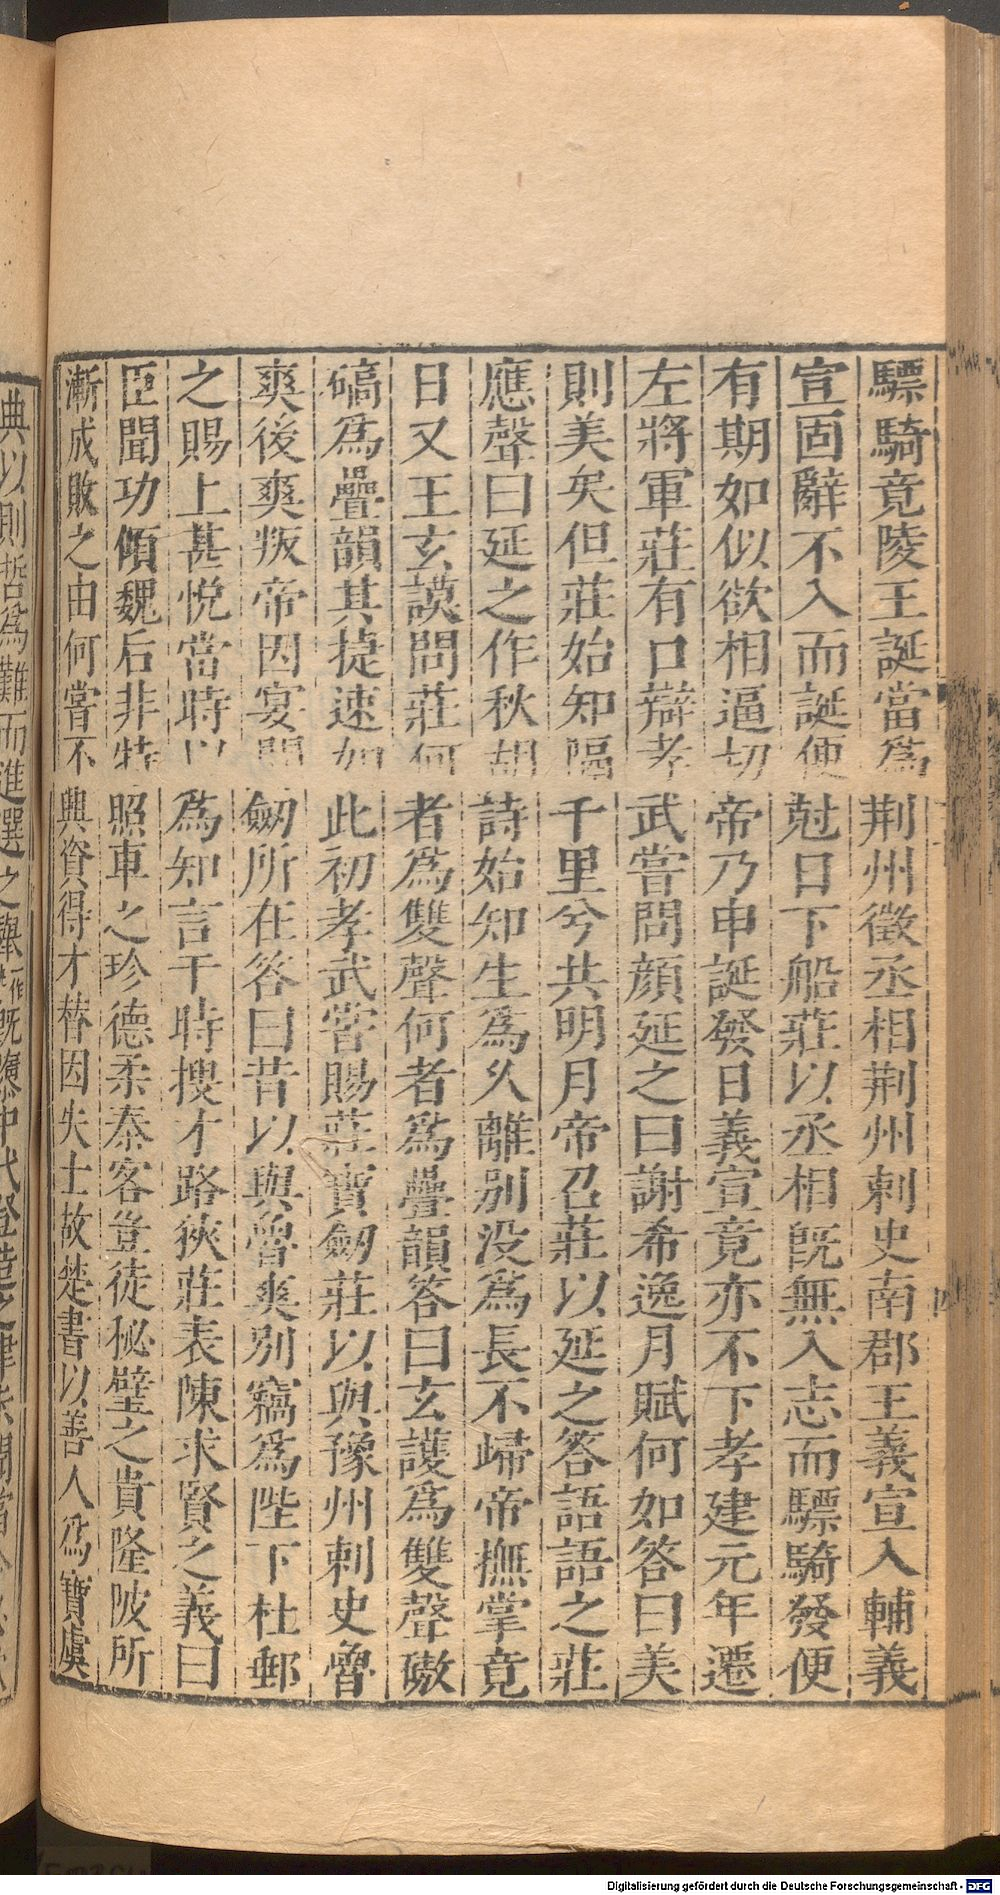 驃騎竟陵王誕當爲荆州徵丞相荆州刺史南郡王義宣入輔義
宣固辭不入而誕便尅日下船莊以丞相旣無入志而驃騎發便
有期如似欲相逼切帝乃申誕發日義宣竟亦不下孝建元年遷
左將軍莊有口辯孝武嘗問顏延之曰謝希逸月賦何如答曰美
則美矣但莊始知隔千里兮共明月帝召莊以延之答語語之莊
應聲曰延之作秋胡詩始知生爲久離別没爲長不歸帝撫掌竟
日又王玄謨問莊何者爲雙聲何者爲疊韻答曰玄護爲雙聲磝
碻爲疊韻其捷速如此初孝武嘗賜莊寶劒莊以與豫州刺史魯
爽後爽叛帝因宴問劒所在答曰昔以與魯爽別竊爲陛下杜郵
之賜上甚悅當時以爲知言于時搜才路狹莊表陳求賢之義曰
臣聞功傾魏后非特照車之珍德柔秦客豈徒祕璧之貴隆陂所
漸成敗之由何嘗不興資得才替因失士故楚書以善人爲寶虞
典以則哲爲難而進選之舉旣隳中代登造之律
Digitalisierung gefördert durch die Deutsche Forschungsgemeinschaft - DFG